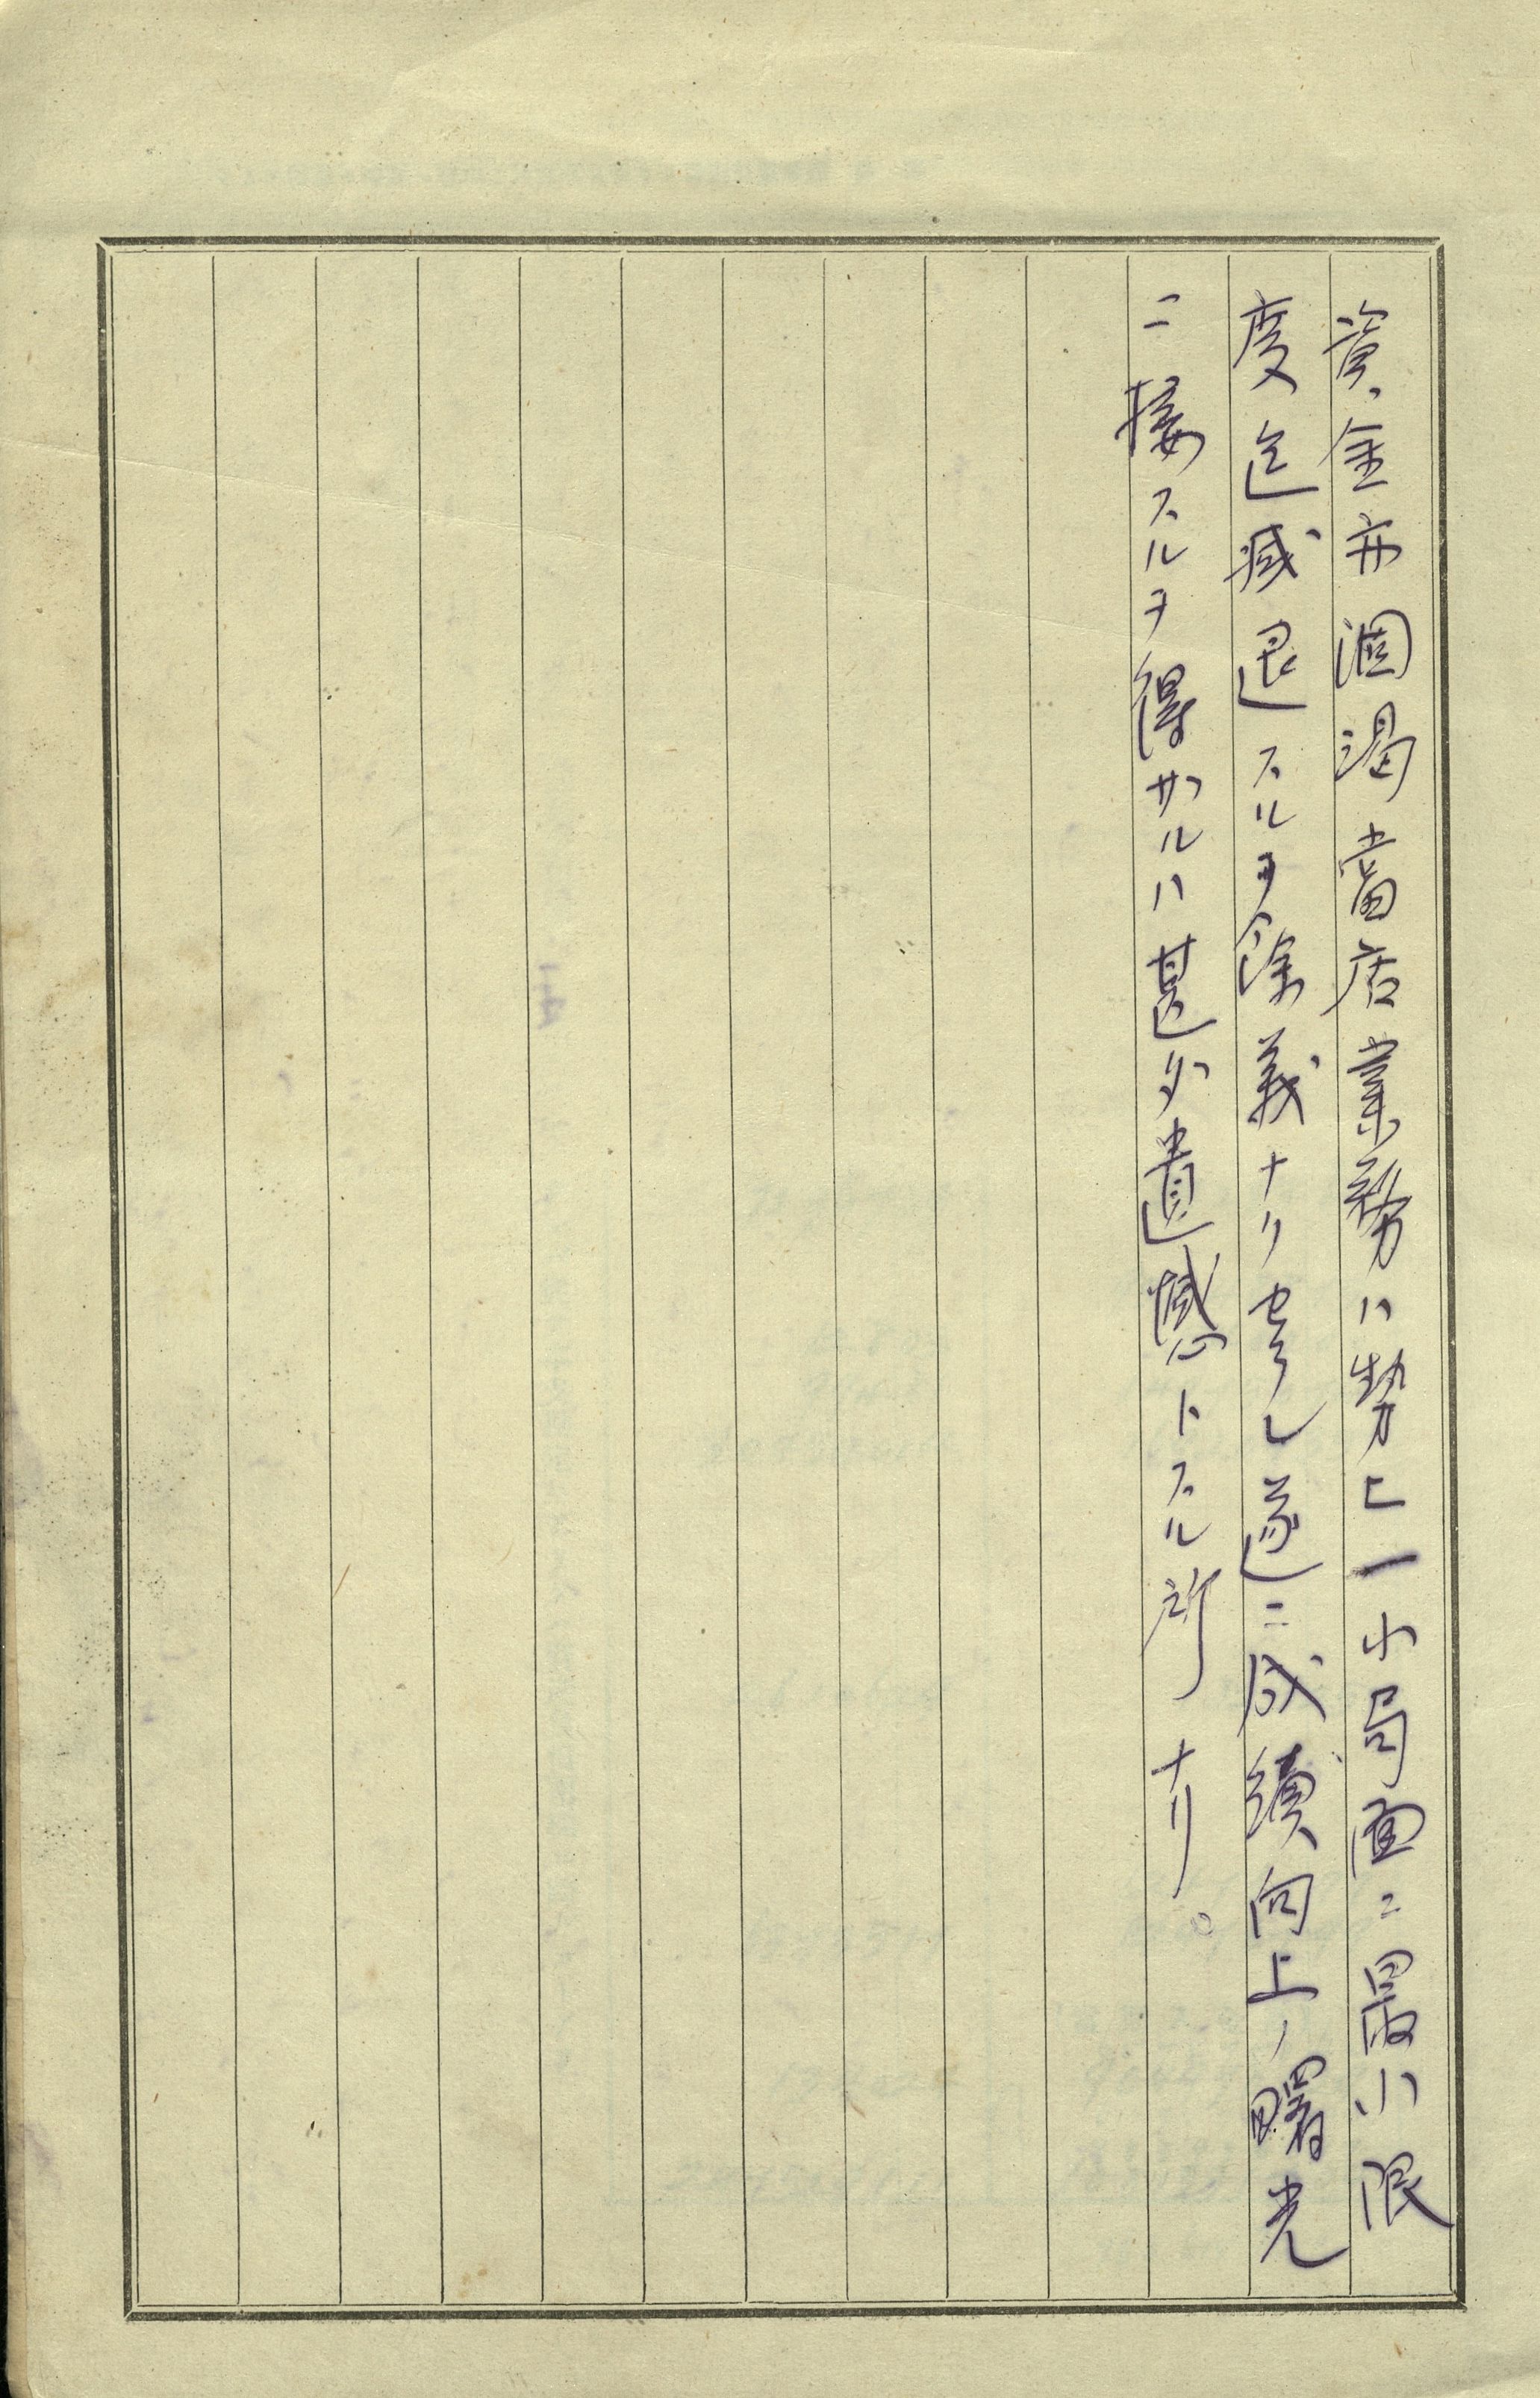 資金亦涸渇當店業務ハ勢ヒ一小局面ニ最小限
度迄減退スルヲ餘義ナリセラレ遂ニ成績向上ノ曙光
ニ接スルヲ得サルハ甚タ遺憾トスル所ナリ。